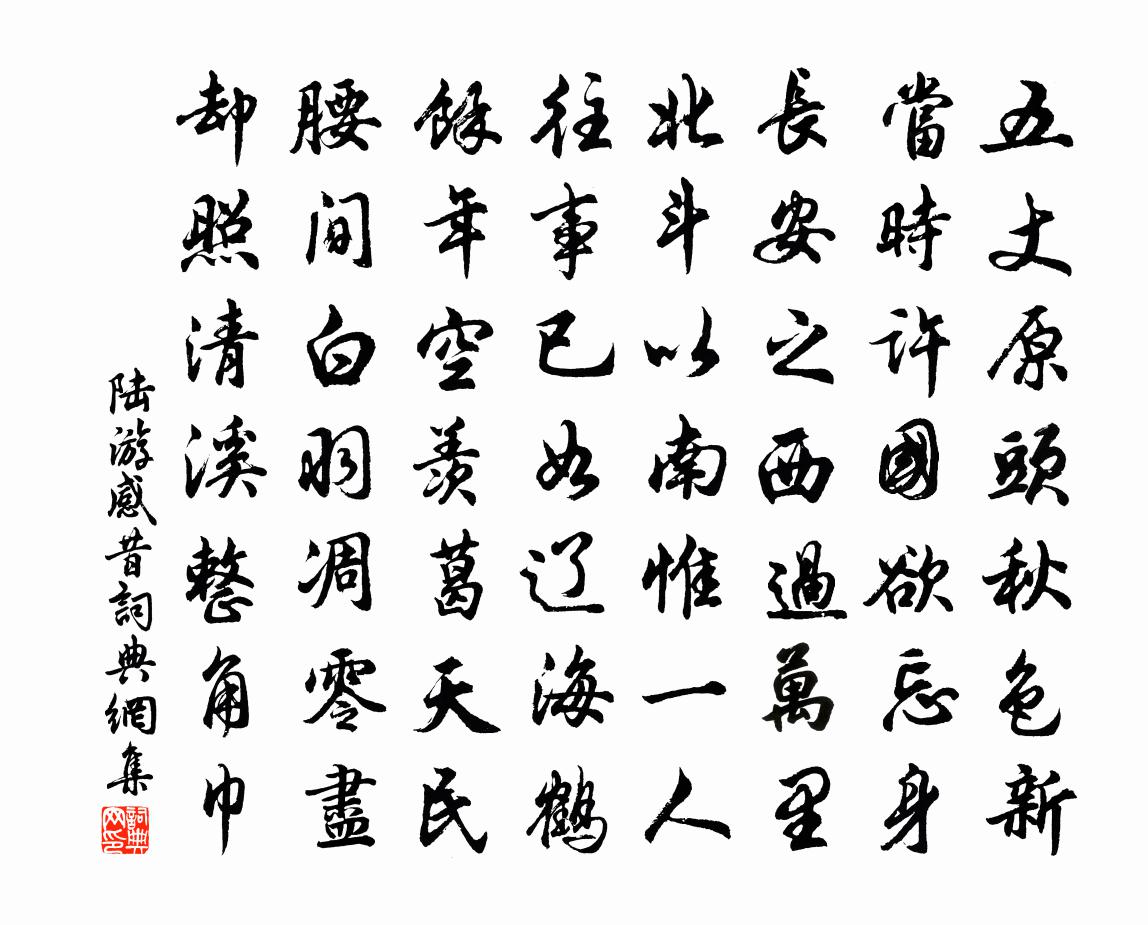 五丈原頭秋色新
當時許國欲忘身
長安之西過萬里
北斗以南惟一人
往事已如辽海鶴
餘年空羨葛天民
腰間白羽凋零盡
却照清溪整角巾
陆游感昔詞典網集
詞典网印